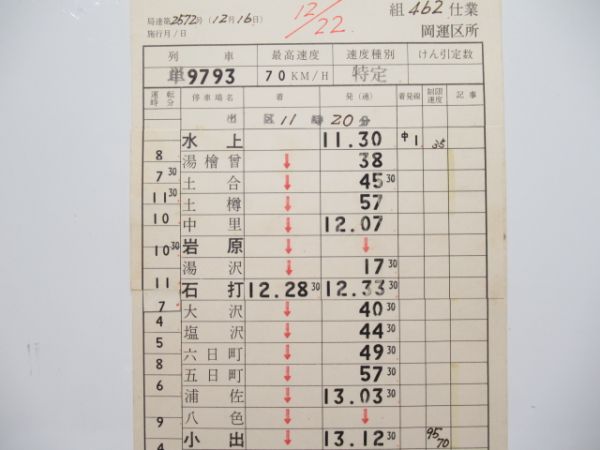 局達第2572号(12月16日)
施行月/日
12/22
組 462 仕業
岡運区所
列車 最高速度 速度種別 けん引定数
単9793 70KM/H 特定
運転時分 停車場名 着 発(通) 着発線 制限速度 記事
出区11時20分
水上 11.30 中1 35
8
湯檜曽 ↓ 38
7 30
土合 ↓ 45 30
11 30
土樽 ↓ 57
10
中里 ↓ 12.07
岩原 ↓ ↓
10 30
湯沢 ↓ 17 30
11
石打 12.28 30 12.33 30
7
大沢 ↓ 40 30
4
塩沢 ↓ 44 30
5
六日町 ↓ 49 30
8
五日町 ↓ 57 30
6
浦佐 ↓ 13.03 30
八色 ↓ ↓
9
小出 ↓ 13.12 30 95 70
4